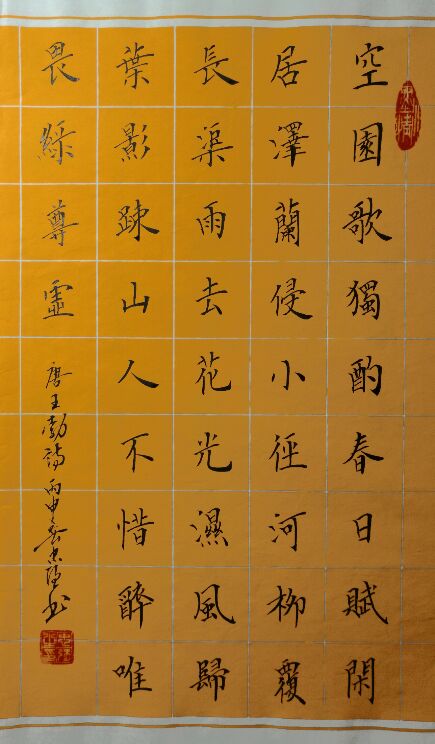 空園歌獨酌春日賦閑
居澤蘭侵小徑河柳覆
長渠雨去花光濕風歸
葉影疎山人不惜醉唯
畏綠尊虛
唐王勃詩丙申